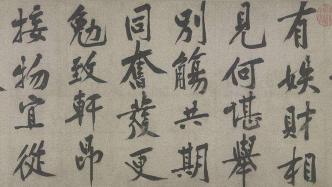 有娱財相
見何堪舉
別觴共期
同奮發更
勉致軒昂
接物宜從